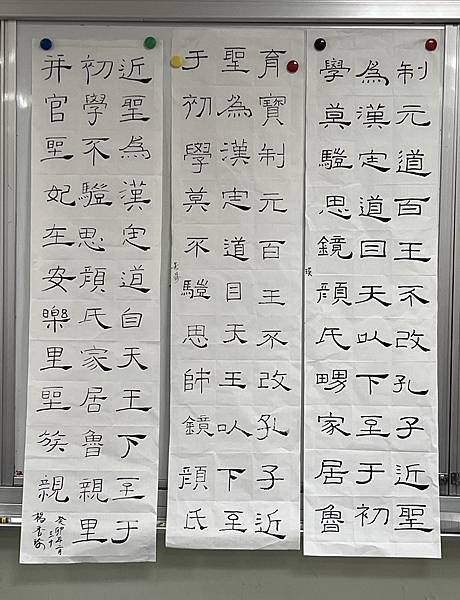 制元道百王不改孔子近聖
為漢定道自天以下至于初
學莫驥思鏡顏氏舅家居魯
瑛
育寶制元百王不改孔子近
聖為漢定道自天王以下至
于初學莫不驥思師鏡顏氏
近聖為漢定道自天王下至于
初學不驥思顏氏家居魯親里
并官聖妃在安樂里聖族親
癸卯年
三十
楊書